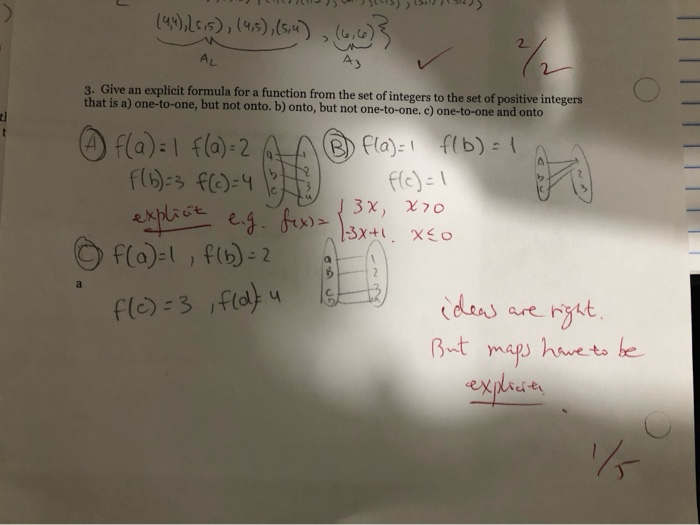 (4,4),(5,5),(4,5),(5,4), (6,6)}
A2 A3 ✓ 2/2
3. Give an explicit formula for a function from the set of integers to the set of positive integers
that is a) one-to-one, but not onto. b) onto, but not one-to-one. c) one-to-one and onto
(A) f(a)=1 f(a)=2 a b c 1 2 3 4 (B) f(a)=1 f(b)=1 A B C 1 2 3
f(b)=3 f(c)=4 f(c)=1
explicit e.g. f(x)= { 3x, x>0
-3x+1. x≤0
(C) f(a)=1, f(b)=2 a B C 1 2 3
a
f(c)=3, f(d)=4
ideas are right.
But maps have to be
explicit.
1/5